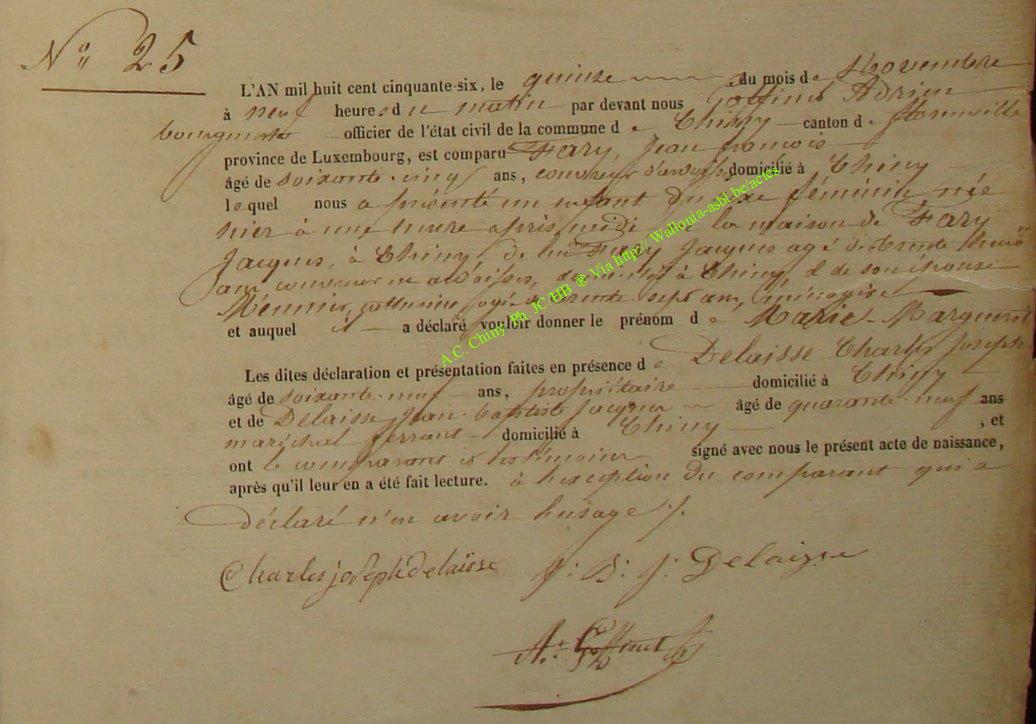 N° 25
L'AN mil huit cent cinquante-six, le quinze du mois de Novembre
à neuf heures du matin par devant nous Goffinet Adrien
bourgmestre officier de l'état civil de la commune de Chiny canton de florenville
province de Luxembourg, est comparu Fary, Jean françois
âgé de soixante-cinq ans, couvreur domicilié à Chiny
lequel nous a présenté un enfant du sexe féminin née
hier à une heure après midi de la maison de Fary
Jacques, à Chiny, de Fary Jacques agé de trente
ans couvreur en ardoises, domicilié à Chiny, et de son épouse
Meunier, agée de trente sept ans, ménagère
et auquel il a déclaré vouloir donner le prénom de Marie-Marguerite
Les dites déclaration et présentation faites en présence de Delaisse Charles Joseph
âgé de soixante-neuf ans, propriétaire domicilié à Chiny
et de Delaisse Jean-baptiste Jacques âgé de quarante neuf ans
maréchal ferrant domicilié à Chiny, et
ont signé avec nous le présent acte de naissance,
après qu'il leur en a été fait lecture. à l'exception du comparant qui a
déclaré n'en avoir l'usage ./.
Charles joseph delaisse J. B. J. Delaisse
A. Goffinet
A.C. Chiny Ph JC/HB ® Via http://Wallonia-asbl.be/actes